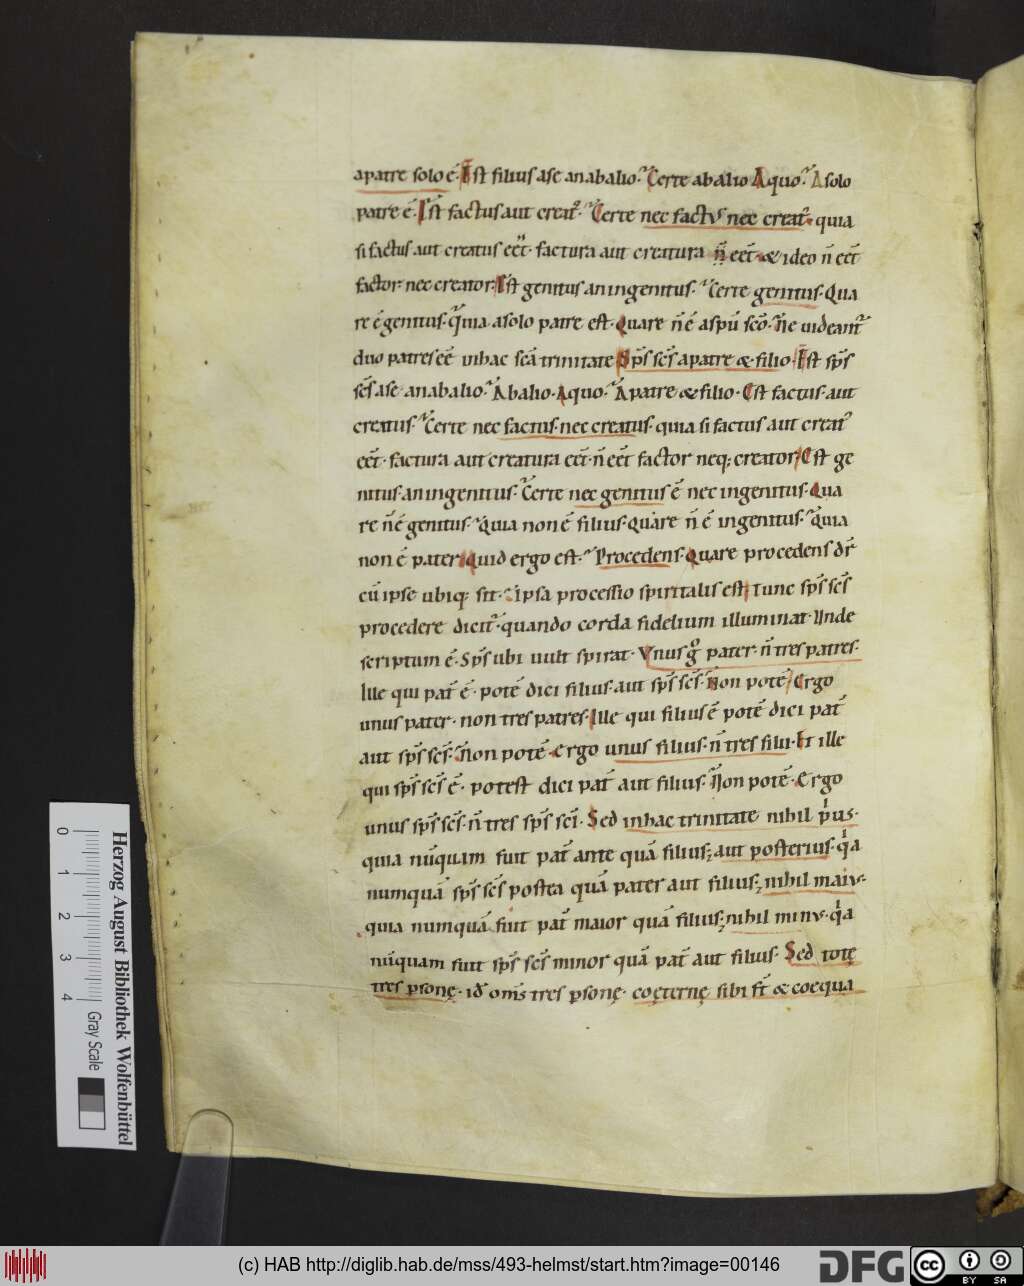 apatre solo ē. Est filius ase anabalio. Certe abalio Aquo. Asolo
patre ē. Est factus aut creat᷒. Certe nec factus nec creat᷒. quia
si factus aut creatus eēt. factura aut creatura n̄ eēt. & ideo n̄ eēt
factor nec creator. Est genitus an ingenitus. Certe genitus. Qua
re ē genitus. Quia asolo patre est. Quare n̄ ē aspū scō. Ne uideant᷒
duo patres eē inhac scā trinitate. Sp̄s sc̄s apatre & filio. Est sp̄s
sc̄s ase anabalio. Abalio. Aquo. Apatre & filio. Est factus aut
creatus. Certe nec factus nec creatus. quia si factus aut creat᷒
eēt. factura aut creatura eēt. n̄ eēt factor neq; creator. Est ge
nitus an ingenitus. Certe nec genitus ē nec ingenitus. Qua
re n̄ ē genitus. Quia non ē filius. Quare n̄ ē ingenitus. Quia
non ē pater. Quid ergo est. Procedens. Quare procedens dr̄
cū ipse ubiq; sit. Ipsa processio spiritalis est. Tunc sp̄s sc̄s
procedere dicit᷒. quando corda fidelium illuminat. Unde
scriptum ē. Sp̄s ubi uult spirat. Vnus gͦ pater. n̄ tres patres.
Ille qui pat̄ ē. potē dici filius. aut sp̄s sc̄s. Non potē. Ergo
unus pater. non tres patres. Ille qui filius ē potē dici pat̄
aut sp̄s sc̄s. Non potē. Ergo unus filius. n̄ tres filii. Et ille
qui sp̄s sc̄s ē. potest dici pat̄ aut filius. Non potē. Ergo
unus sp̄s sc̄s. n̄ tres sp̄s sc̄i. Sed inhac trinitate nihil pͥus.
quia nūquam fuit pat̄ ante quā filius; aut posterius. qͥa
numquā sp̄s sc̄s postea quā pater aut filius; nihil maius.
quia numquā fuit pat̄ maior quā filius; nihil minus. qͥa
nūquam fuit sp̄s sc̄s minor quā pat̄ aut filius. Sed totę
tres psonę. id om̄s tres psonę. coęternę sibi st̄ & coequa
0
1
2
3
4
Herzog August Bibliothek Wolfenbüttel
Gray Scale
(c) HAB http://diglib.hab.de/mss/493-helmst/start.htm?image=00146
DFG
cc
BY SA